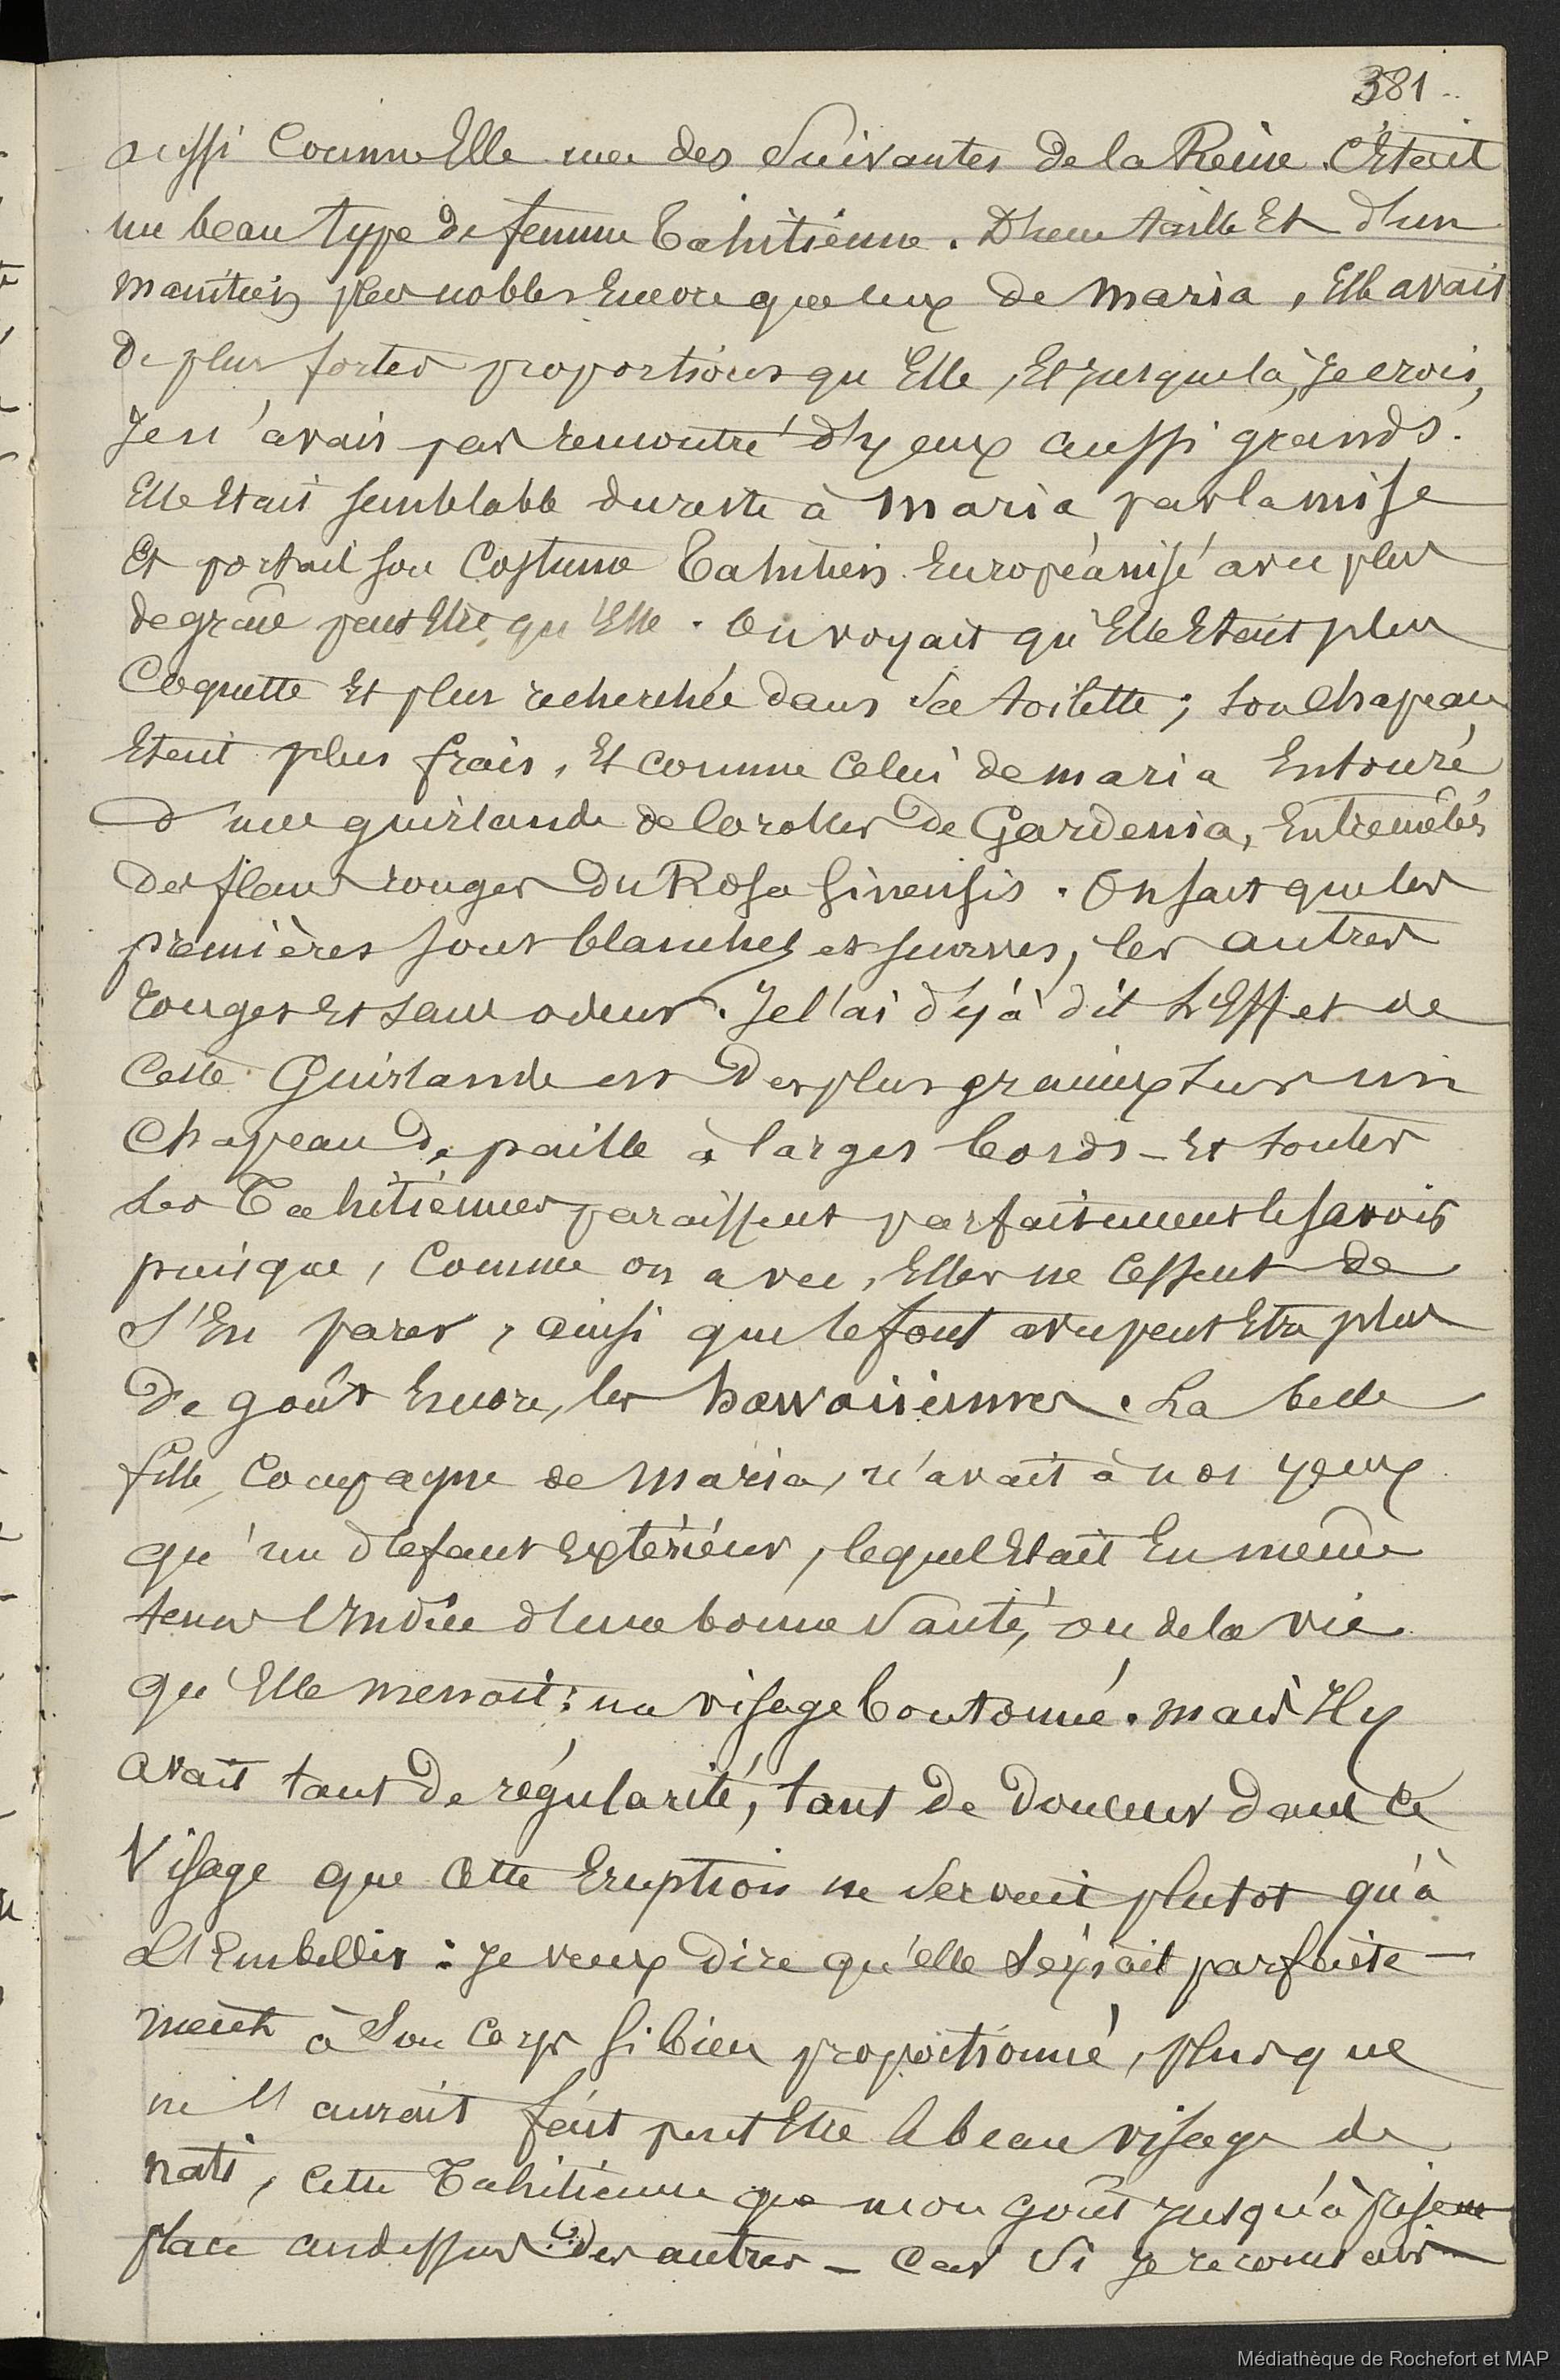 381
aussi comme Elle une des Suivantes de la Reine. C'Etait
un beau type de femme Tahitienne. D'une taille Et d'un
maintien plus nobles Encore que ceux de Maria, Elle avait
de plus fortes proportions qu'Elle, Et jusque là, Je crois,
Je n'avais pas rencontré d'yeux aussi grands.
Elle Etait semblable du reste à Maria par la mise
Et portait son Costume Tahitien Européanisé avec plus
de grâce peut Etre qu'Elle. On voyait qu'Elle Etait plus
Coquette Et plus recherchée dans sa toilette; son Chapeau
Etait plus frais, Et comme celui de maria Entouré
d'une guirlande de Corolles de Gardenia, Entremêlés
des fleurs rouges du Rosa Sinensis. On sait que les
premières sont blanches et suaves, les autres
rouges Et sans odeur. Je l'ai déjà dit L'Effet de
Cette Guirlande est des plus gracieux sur un
Chapeau de paille à larges bords - Et toutes
les Tahitiennes paraissent parfaitement le savoir
puisque, Comme on a vu, Elles ne Cessent de
S'En parer, ainsi que le font avec peut Etre plus
de goût Encore, les hawaiiennes. La belle
fille, Compagne de Maria, n'avait à nos yeux
qu'un défaut extérieur, lequel Etait En même
tems l'Indice d'une bonne Santé, ou de la vie
qu'Elle menait: un visage boutonné. Mais Il y
avait tant de régularité, tant de douceur dans ce
Visage que Cette Eruption ne Servait plutot qu'à
L'Embellir: je veux dire qu'elle séyait parfaite-
ment à Son Corps si bien proportionné, plus que
ne l'aurait fait peut Etre le beau visage de
Nati, cette Tahitienne que mon goût jusqu'à présent
place audessus des autres - Car Si je reconnais